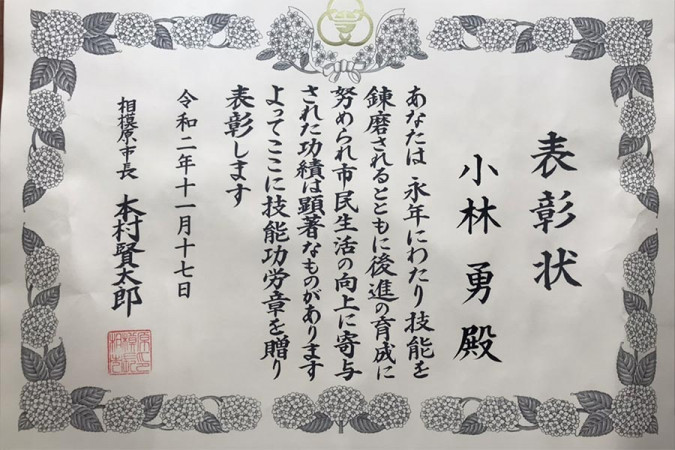 表彰状
小林 勇 殿
あなたは 永年にわたり 技能を
錬磨されるとともに後進の育成に
努められ市民生活の向上に寄与
された功績は顕著なものがあります
よってここに技能功労章を贈り
表彰します
令和二年十一月十七日
相模原市長 本村賢太郎